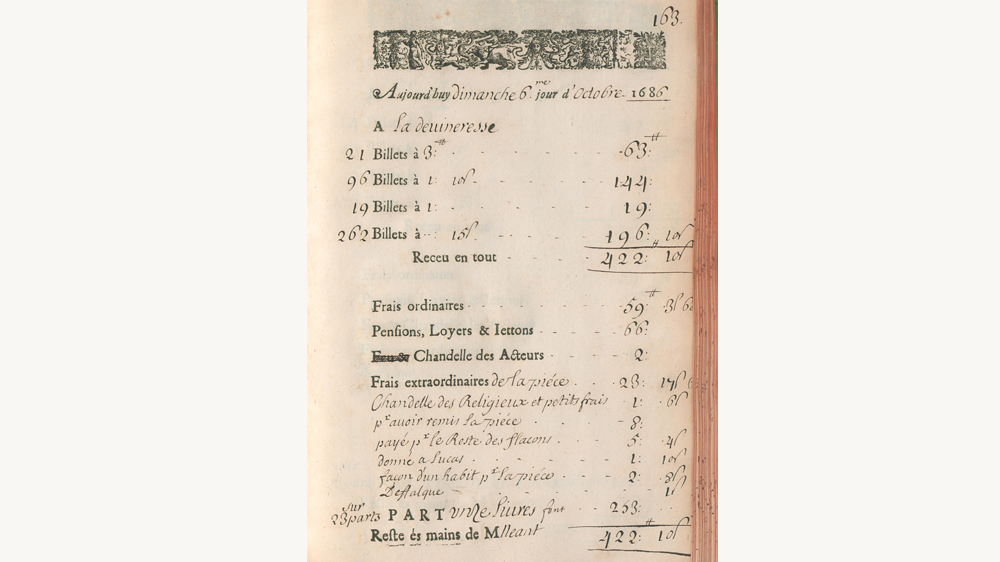 163.
Aujourd'huy dimanche 6.me jour d'Octobre 1686
A La deuineresse
21 Billets à 3:# 63:#
96 Billets à 1: 10ſ. 144:
19 Billets à 1: 19:
262 Billets à : 15ſ. 196:# 10ſ
Receu en tout 422: 10ſ
Frais ordinaires 59:# 3ſ 6
Penſions, Loyers & Iettons 66:
Chandelle des Acteurs 2:
Frais extraordinaires de la piéce 23: 17ſ 6
Chandelle des Religieux et petits frais 1: 6ſ
p.r auoir remis La piéce 8:
payé p.r le Reste des flacons 5: 4ſ
donné a Lucas 1: 10ſ
façon d'un habit p.r la piéce 2: 8ſ
Deffalque 1ſ
sur 23 parts PART vnze Liures font 253:
Reſte és mains de Mlleant 422:# 10ſ